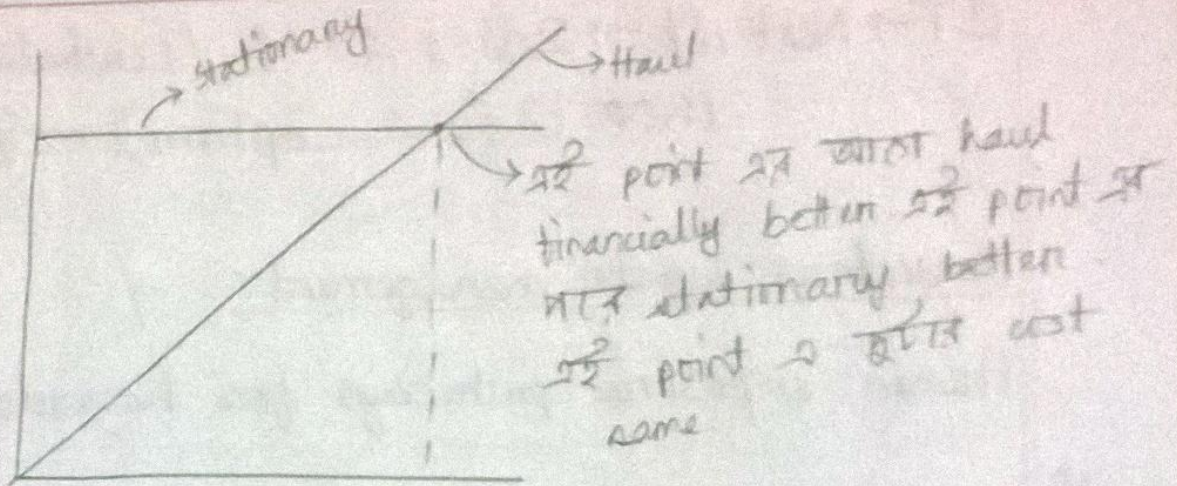 stationary
Haul
এই point এর আগে haul
financially better এই point এর
পরে stationary better
এই point এ দুইটার cost
same